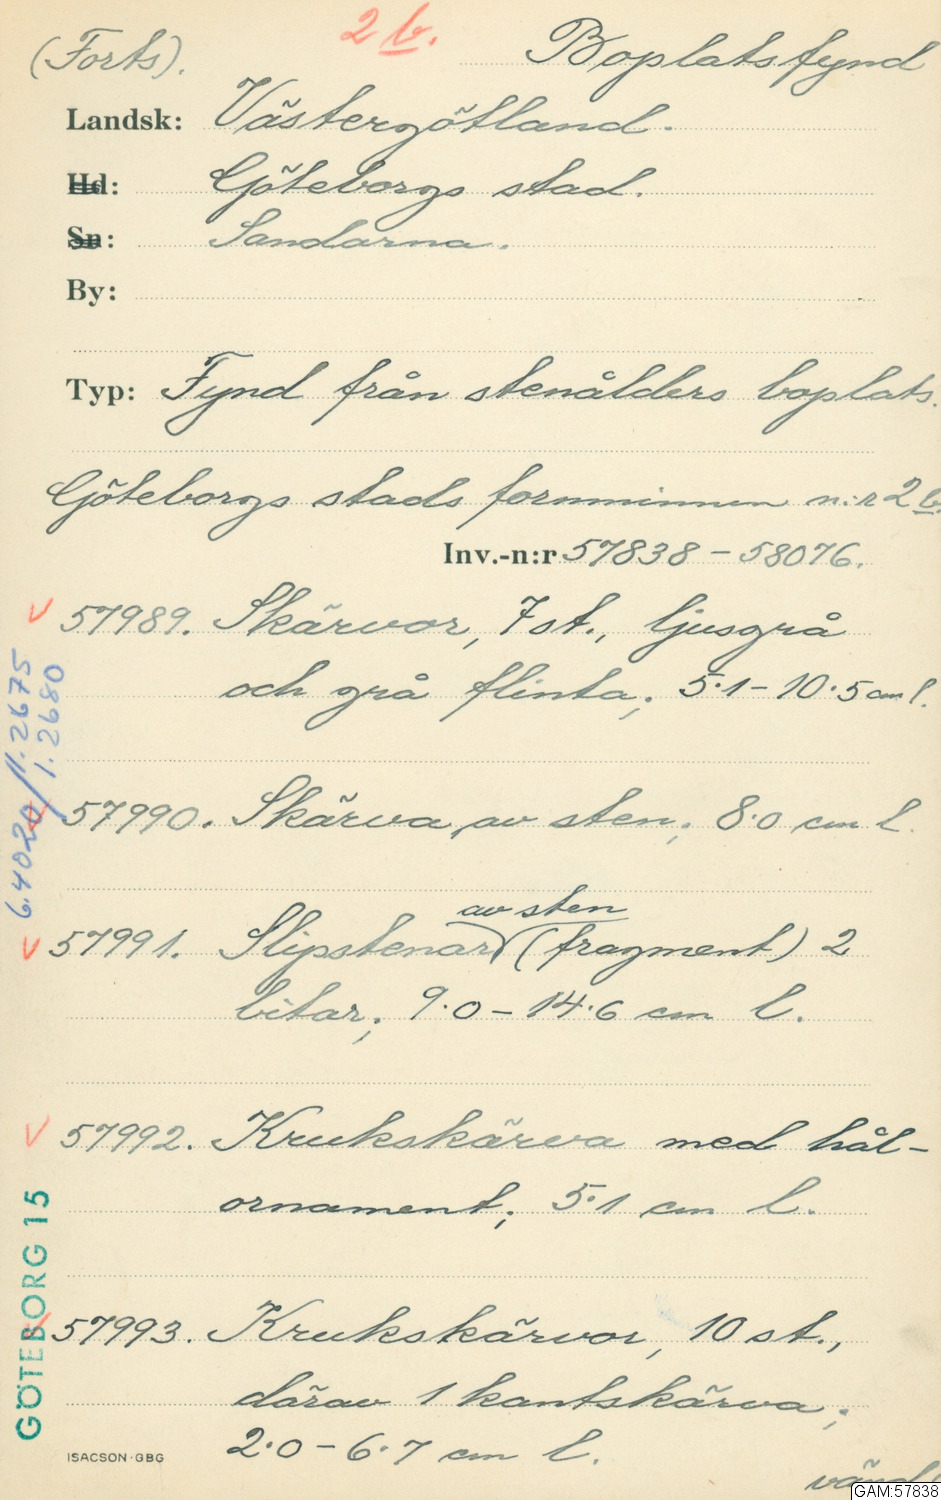 (Forts). 2 b. Boplatsfynd
Landsk: Västergötland.
Hd: Göteborgs stad.
Sn: Sandarna.
By:
Typ: Fynd från stenålders boplats.
Göteborgs stads fornminnen n:r 2 b.
Inv.-n:r 57838 – 58076.
57989. Skärvor, 7 st., ljusgrå
och grå flinta; 5.1 – 10.5 cm l.
6.4020/1.2675
1.2680
57990. Skärva av sten; 8.0 cm l.
av sten
57991. Slipstenar (fragment) 2
bitar; 9.0 – 14.6 cm l.
57992. Krukskärva med hål-
ornament; 5.1 cm l.
57993. Krukskärvor, 10 st.,
därav 1 kantskärva;
2.0 – 6.7 cm l.
GÖTEBORG 15
ISACSON·GBG
vänd!
GAM:57838